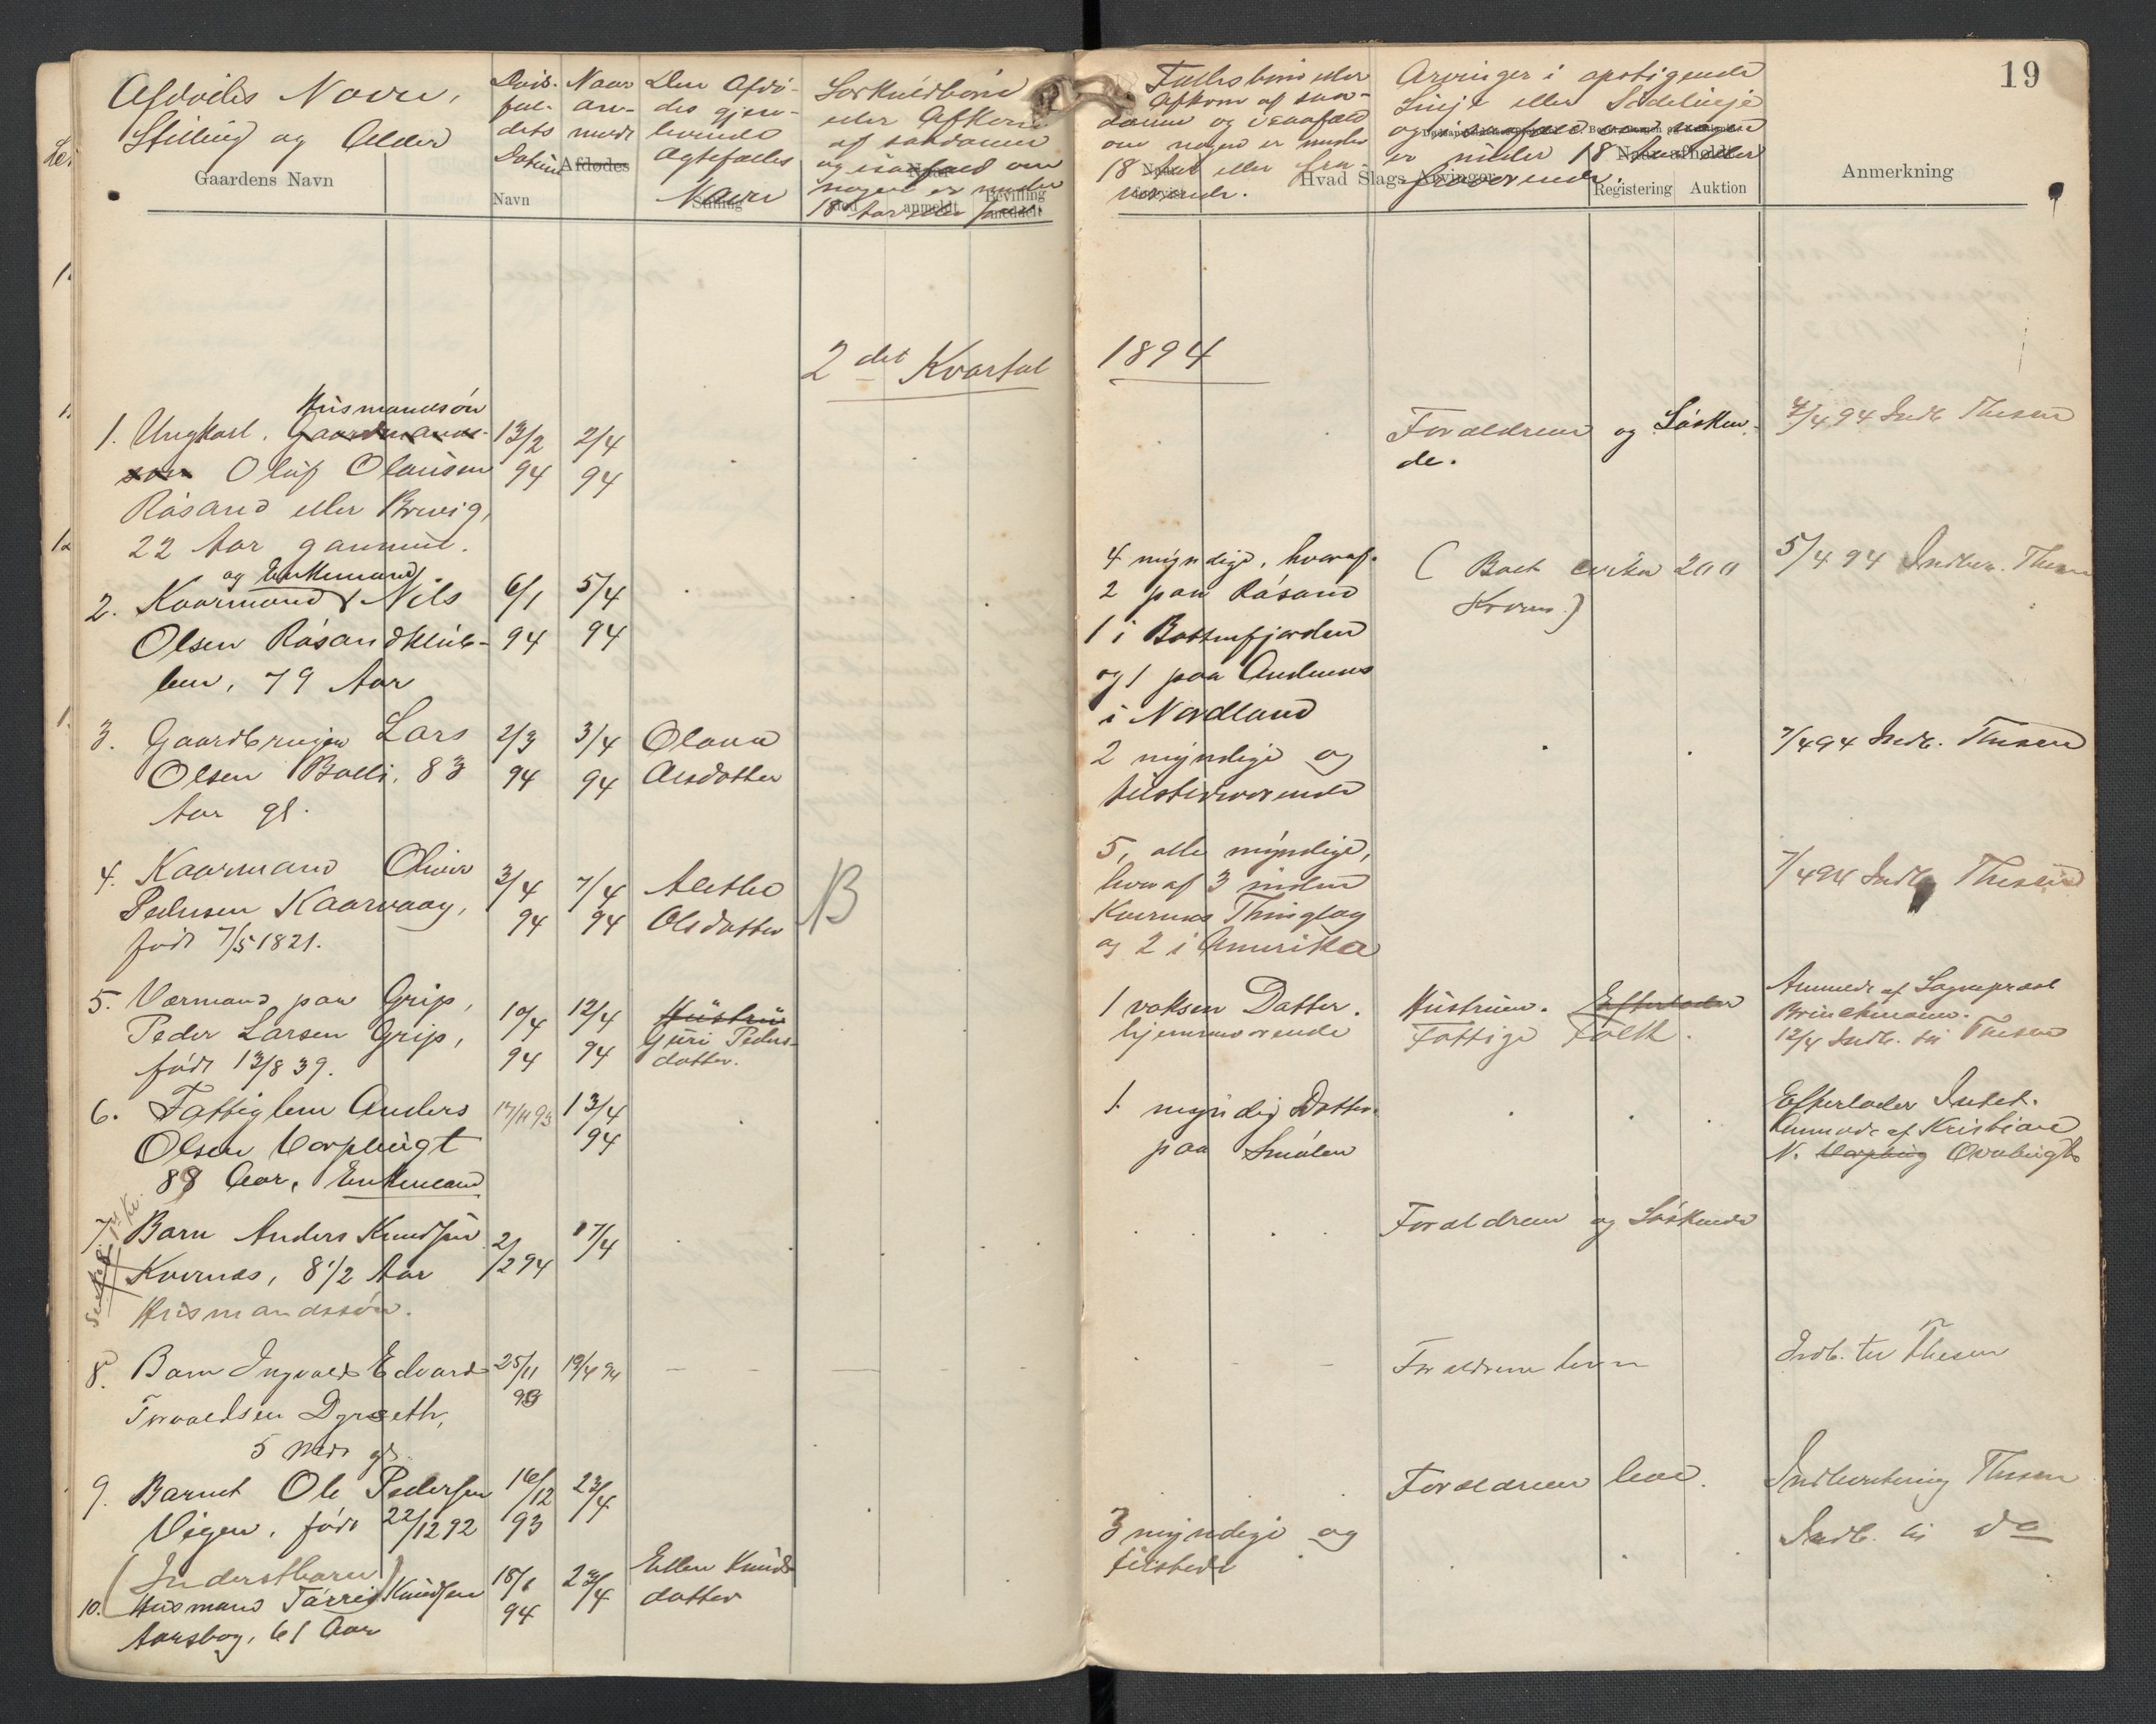 19
Afdødes Navn,
Stilling og Alder
Gaardens Navn
Døds-
fal-
dets
Datum
Navn
Naar
an-
meldt
Afdødes
Den Afdø-
des gjen-
levende
Ægtefælles
Navn
Stilling
Særkuldbørn
eller Afkom
af saadanne
og isaafald om
nogen er under
18 Aar eller fra-
anmeldt
Bevilling
meddelt
Fællesbørn eller
Afkom af saa-
danne og isaafald
om nogen er under
18 Aar eller fra-
værende.
Arvinger i opstigende
Linje eller Sidelinje
og isaafald om nogen
er under 18 Aar eller
fraværende.
Hvad Slags Arvinger
Registering Auktion
Anmerkning
2det Kvartal 1894
Husmandssøn
1. Ungkarl. Gaardmands-
søn Oluf Olausen
Røsand eller Brevig,
22 Aar gammel.
13/2
94
2/4
94
Forældrene og Søsken-
de.
7/4 94 Indb. Thesen
og Enkemand
2. Kaarmand Nils
Olsen Røsandklub-
ben, 79 Aar
6/1
94
5/4
94
4 myndige, hvoraf
2 paa Røsand
1 i Battenfjorden
og 1 paa Andenes
i Nordland
( Boet cirka 200
Kroner.)
5/4 94 Indber. Thesen
3. Gaardbruger Lars
Olsen Bolli, 83
Aar gl.
2/3
94
3/4
94
Olava
Olsdatter
2 myndige og
tilstedeværende
7/4 94 Indb. Thesen
4. Kaarmand Oliver
Pedersen Kaarvaag,
født 7/5 1821.
3/4
94
7/4
94
Alethe
Olsdatter
B
5, alle myndige,
hvoraf 3 inden
Kvernes Thinglag
og 2 i Amerika
7/4 94 Indb. Thesen
5. Værmand paa Grip,
Peder Larsen Grip,
født 13/8 39.
10/4
94
12/4
94
Hustru
Guri Peders-
datter.
1 voksen Datter.
hjemmeværende
Hustruen. Efterlader
Fattige Folk.
Anmeldt af Sogneprest
Brinchmann.
12/4 Indb. til Thesen
6. Fattiglem Anders
Olsen Varpbugt
88 Aar, Enkemand
17/11 93
13/4
94
1 myndig Datter
paa Smølen
Efterlader Intet.
Anmeldt af Kristian
N. Varpbug
7. Barn Anders Knudsen
Kvernes, 8 1/2 Aar
Husmandssøn.
2/2 94
17/4
Forældrene og Søskende
8. Barn Ingvald Edvard
Torvaldsen Dyrseth,
5 Mdr gl.
25/11
93
19/4 94
Forældrene leve
Indb. til Thesen
9. Barnet Ole Pedersen
Vigen, født 22/12 92
(Inderstbarn)
16/12
93
23/4
Forældrene leve.
Indberetning Thesen
10. Husmand Tørris Knudsen
Aarsbog, 61 Aar
18/1
94
23/4
Ellen Knuds-
datter
3 myndige og
tilstede
Indb. til do